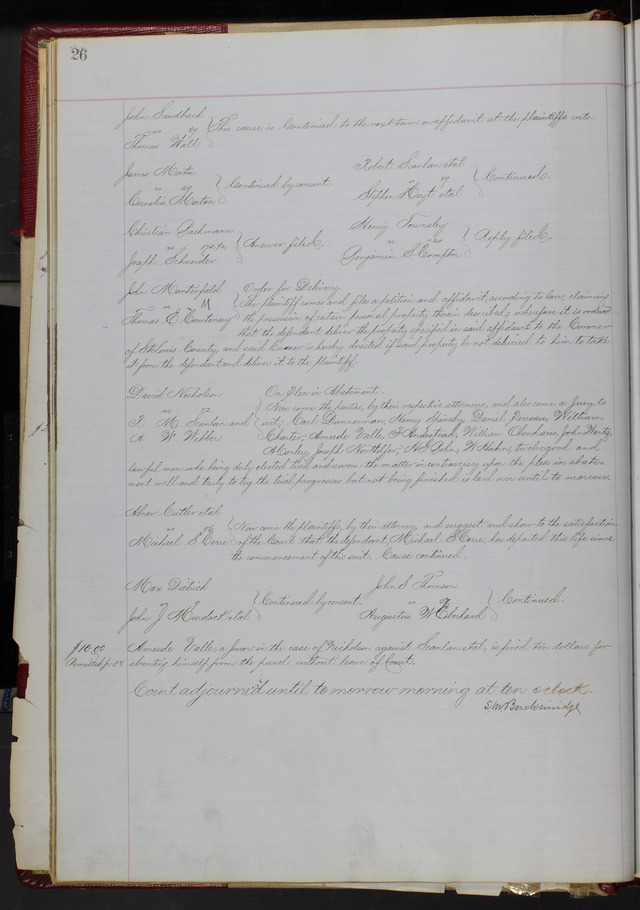 26
John Sandbach
vs 89
Thomas Wall
This cause is Continued to the next term on affidavit at the plaintiffs costs.
James Morton
vs
Cornelia Morton
Continued by consent.
Robert Scanlan etal
vs
Stephen Hoyt etal
Continued.
Christian Bachmann
vs
Joseph Schneider
Answer filed.
Henry Townsley
vs
Benjamin S. Compton
Reply filed.
John Menterfield
vs
Thomas E Courtenay
Order for Delivery
The plaintiff comes and files a petition and affidavit, according to law, claiming
the possession of certain personal property therein described; wherefore it is ordered
that the defendant deliver the property specified in said affidavit to the Coroner
of St Louis County, and said Coroner is hereby directed if said property be not delivered to him to take
it from the defendant and deliver it to the plaintiff.
David Nicholson
vs
F. M. Scanlan and
A W Webber
On Plea in Abatement.
Now come the parties, by their respective attorneys, and also come a Jury to
wit; Carl Dannerman, Henry Spinsby, Daniel William
Charter, Amede Valle, F William Obenhaus, John Wertz,
A Conley, Joseph H W Hahn, twelve good and
lawful men, who being duly elected tried and sworn the matter in controversy upon the plea in abate-
ment well and truly to try the trial progresses but not being finished is laid over until to morrow.
Abner Cutler etal
vs
Michael S Cerre
Now come the plaintiffs, by their attorney and suggest and show to the satisfaction
of the Court that the defendant, Michael S Cerre, has departed this life since
the commencement of this suit. Cause continued.
Max Dietrich
vs
John J Murdock etal
Continued by consent.
John S. Thomson
vs
Augustus W Eberhard
Continued.
$10.00
Remitted p. 38
Amede Valle, a Juror in the case of Nicholson against Scanlan etal, is fined ten dollars for
absenting himself from the panel without leave of Court.
Court adjourned until tomorrow morning at ten oclock.
S. M. Breckinridge